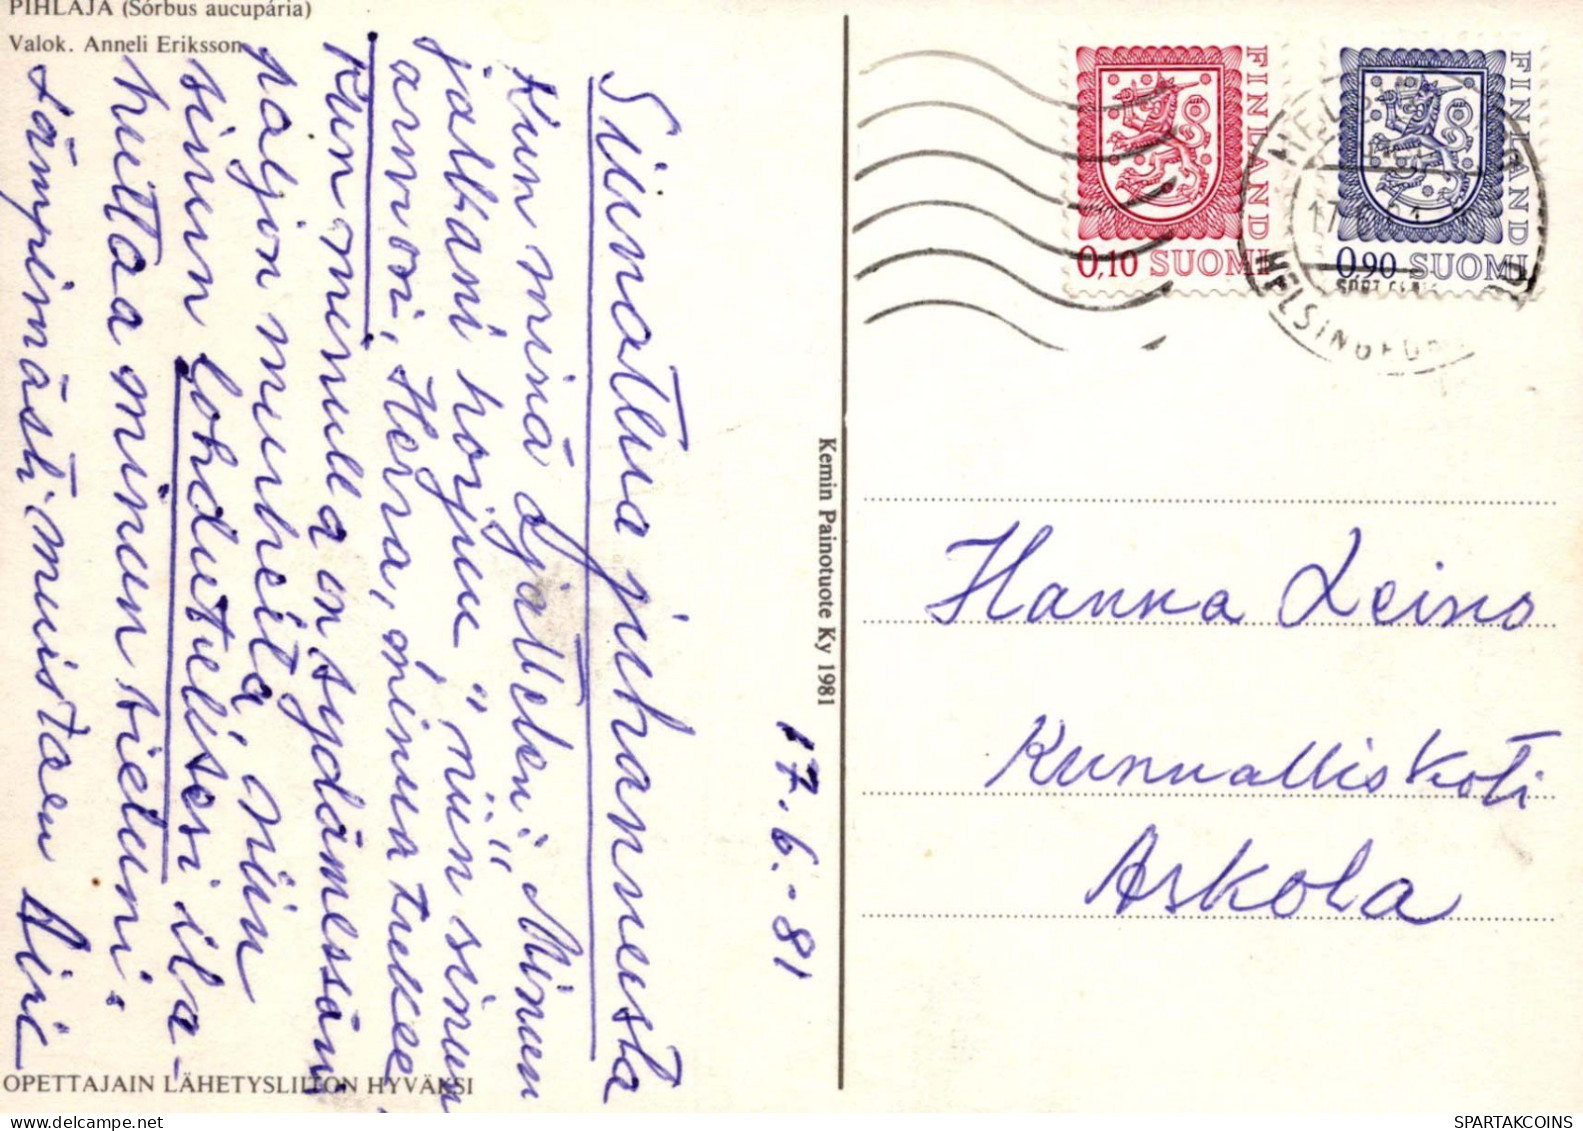 PIHLAJA (Sórbus aucupária)
Valok. Anneli Eriksson
Siunattua juhannusta
Kun minä ajattelen: „Minun
jalkani horjuu" niin sinun
armosi, Herra, minua tukee,
Kun minulla on sydämessäni
paljon murheita, niin
sinun lohdutuksesi ila-
huttaa minun sieluni.
Lämpimästi muistaen
17.6.-81
OPETTAJAIN LÄHETYSLIITON HYVÄKSI
Kemin Painotuote Ky 1981
FINLAND
0,10 SUOMI
FINLAND
0,90 SUOMI
HELSINGFORS
Hanna Leino
Kunnalliskoti
Askola
SPARTAKCOINS